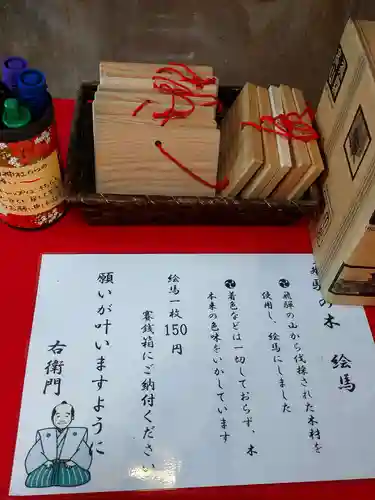 飛騨の木 絵馬
飛騨の山から伐採された木材を
使用し、絵馬にしました
着色などは一切しておらず、木
本来の色味をいかしています
絵馬一枚 150 円
賽銭箱にご納付ください
願いが叶いますように
右衛門